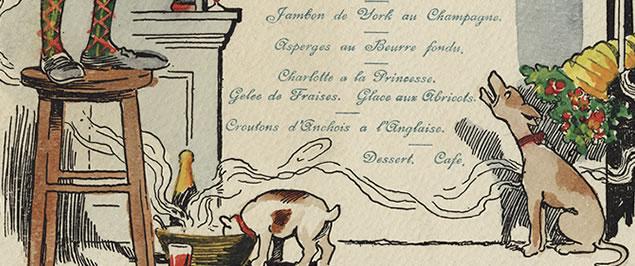 Jambon de York au Champagne.
Asperges au Beurre fondu.
Charlotte a la Princesse.
Gelee de Fraises. Glace aux Abricots.
Croutons d'Anchois a l'Anglaise.
Dessert. Café.